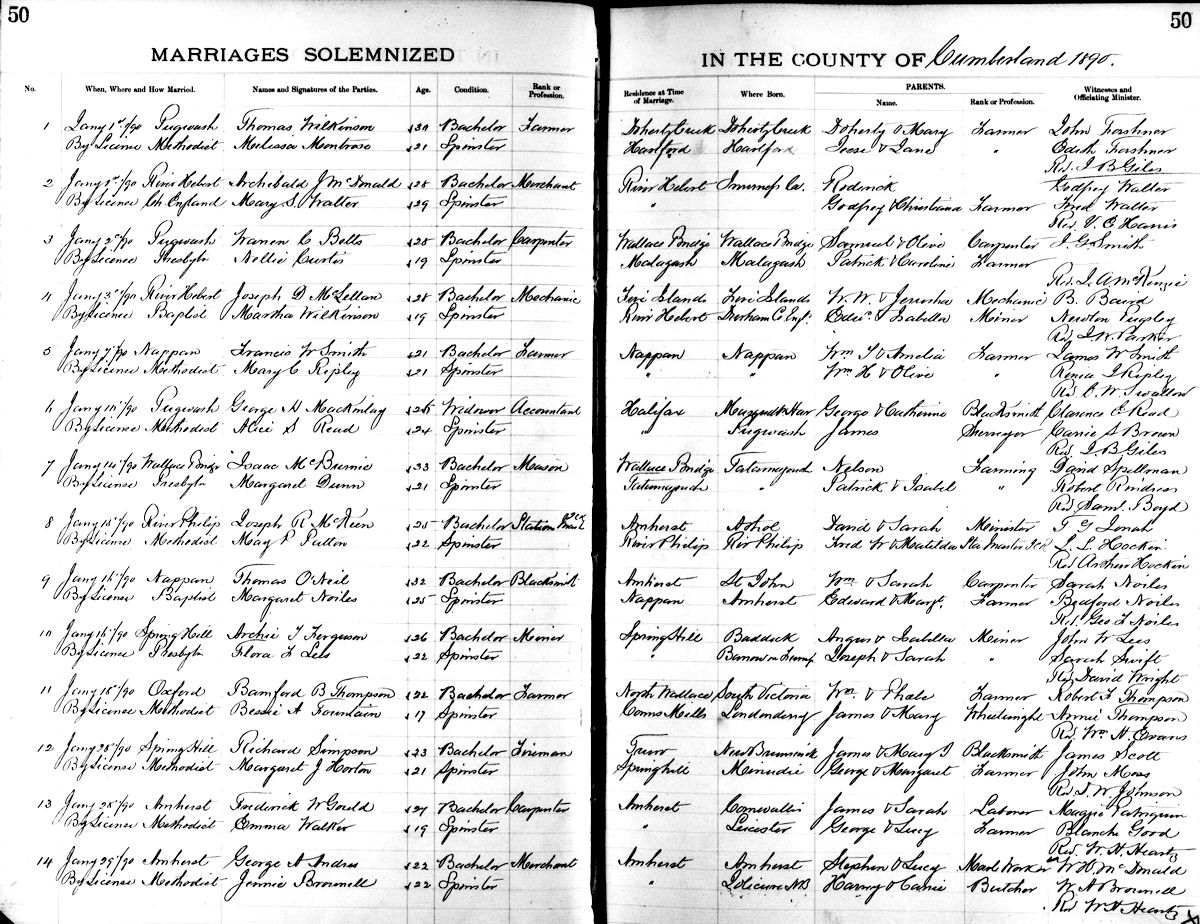 50
50
MARRIAGES SOLEMNIZED
IN THE COUNTY OF Cumberland 1890.
No. When, Where and How Married. Names and Signatures of the Parties. Age. Condition. Rank or Profession. Residence at Time of Marriage. Where Born. PARENTS. Name. Rank or Profession. Witnesses and Officiating Minister.
1 Jany 1st/90 Pugwash Thomas Wilkinson 30 Bachelor Farmer Doherty Creek Doherty Creek Doherty & Mary Farmer John Forshner
By License Methodist Melissa Montrose 21 Spinster Hartford Hartford Jesse & Jane " Edith Forshner
Rev. J B Giles
2 Jany 1st/90 River Hebert Archibald J McDonald 28 Bachelor Merchant River Hebert Inverness Co. Roderick Godfrey Walter
By License Ch. England Mary S. Walter 29 Spinster " Godfrey & Christiana Farmer Fred Walter
Rev. V. E Harris
3 Jany 2nd/90 Pugwash Warren C Betts 25 Bachelor Carpenter Wallace Bridge Wallace Bridge Samuel & Olive Carpenter J. G Smith
By License Presbytn Nellie Curtis 19 Spinster Malagash Malagash Patrick & Caroline Farmer
Rev. J. A McKenzie
4 Jany 3rd/90 River Hebert Joseph D McLellan 28 Bachelor Mechanic Five Islands Five Islands W. W. & Jerusha Mechanic B. Baird
By License Baptist Martha Wilkinson 19 Spinster River Hebert Durham Co Engd. & Isabella Miner Newton Pugsley
Rev. J. W. Parker
5 Jany 7th/90 Nappan Francis W Smith 21 Bachelor Farmer Nappan Nappan Wm T & Amelia Farmer James W Smith
By License Methodist Mary C Ripley 21 Spinster " " Wm H & Olive " J Ripley
Rev. C. W. Swallow
6 Jany 14/90 Pugwash George H Mackinlay 25 Widower Accountant Halifax George & Catherine Blacksmith Clarence E Read
By License Methodist Alice S Read 24 Spinster " Pugwash James Surveyor Carrie S Brown
Rev. J. B Giles
7 Jany 14/90 Wallace Bridge Isaac McBurnie 33 Bachelor Mason Wallace Bridge Tatamagouch Nelson Farming David Spellman
By License Presbytn Margaret Dunn 21 Spinster Tatamagouch " Patrick & Isabel " Robert Rindress
Rev. Saml. Boyd
8 Jany 15/90 River Philip Joseph R McKeen 25 Bachelor Station Amherst Athol David & Sarah Minister T G Jonah
By License Methodist May P Fulton 22 Spinster River Philip Riv Philip Fred W & Matilda Sta Master I.C.R. L. L. Hockin
Rev Arthur Hockin
9 Jany 16/90 Nappan Thomas O'Neil 32 Bachelor Blacksmith Amherst St John Wm & Sarah Carpenter Sarah Noiles
By License Baptist Margaret Noiles 25 Spinster Nappan Amherst Edward & Margt. Farmer Bedford Noiles
Rev. Geo F Noiles
10 Jany 16/90 Spring Hill Archie T Ferguson 26 Bachelor Miner Spring Hill Baddeck Angus & Isabella Miner John W Lees
By License Presbytn Flora F Lees 22 Spinster " Barrow in Joseph & Sarah " Sarah Swift
Rev. David Wright
11 Jany 18/90 Oxford Bamford B Thompson 22 Bachelor Farmer North Wallace South Victoria Wm. & Phebe Farmer Robert F Thompson
By License Methodist Bessie A Fountain 17 Spinster Conns Mills Londonderry James & Mary Wheelwright Annie Thompson
Rev. Wm A. Evans
12 Jany 28/90 Spring Hill Richard Simpson 23 Bachelor Fireman Truro New Brunswick James & Mary J Blacksmith James Scott
By License Methodist Margaret J Horton 21 Spinster Springhill Minudie George & Margaret Farmer John Moss
Rev. J. W. Johnson
13 Jany 28/90 Amherst Frederick W Gould 27 Bachelor Carpenter Amherst Cornwallis James & Sarah Laborer Maggie Patriquin
By License Methodist Emma Walker 19 Spinster " Leicester George & Lucy Farmer Blanche Good
Rev. W. H. Heartz
14 Jany 29/90 Amherst George A Andres 22 Bachelor Merchant Amherst Amherst Stephen & Lucy Marl Worker W. H. McDonald
By License Methodist Jennie Brownell 22 Spinster " Jolicure NB Harvey & Carrie Butcher W. A Brownell
Rev W H Heartz